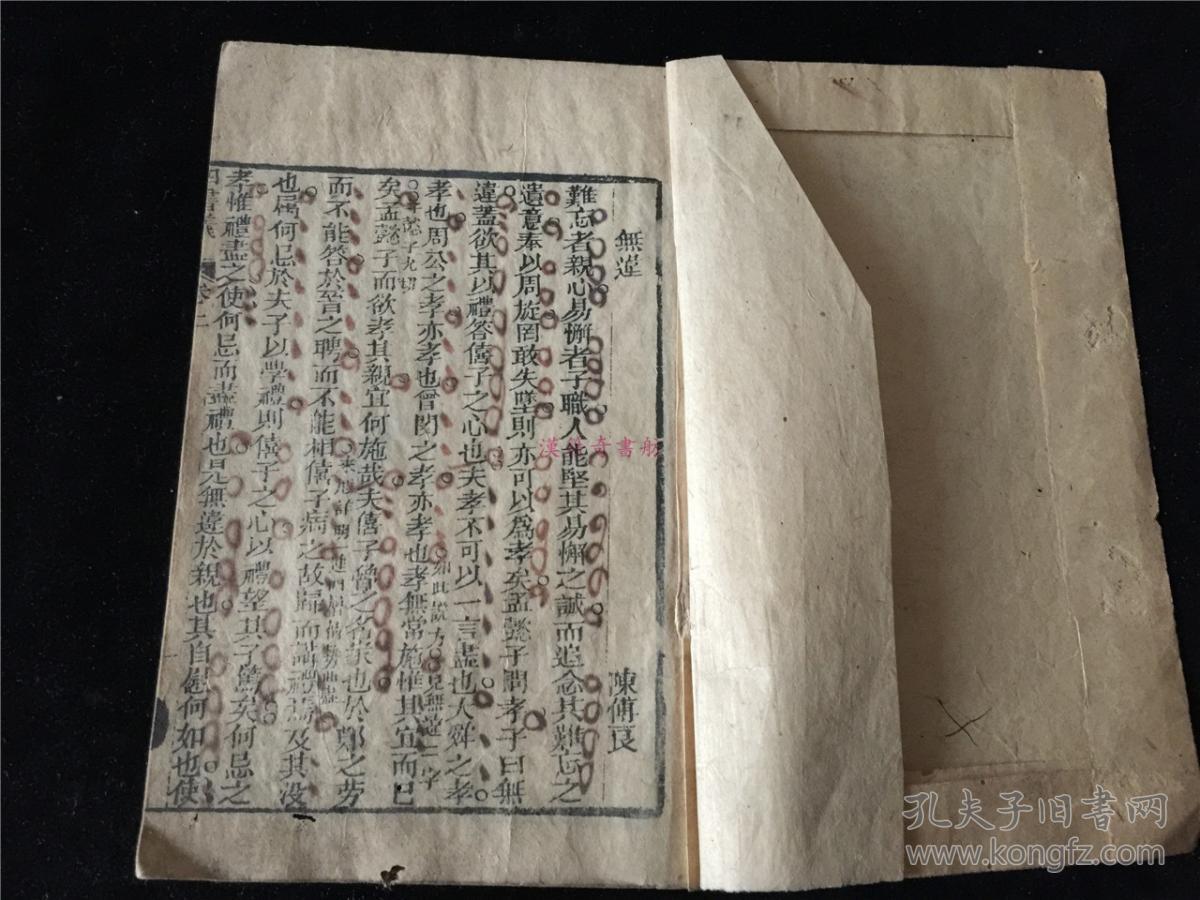 無違 陳傅良
難忘者親心易懈者子職人能堅其易懈之誠而追念其難忘之
遺意奉以周旋罔敢失墜則亦可以爲孝矣孟懿子問孝子曰無
違蓋欲其以禮答僖子之心也夫孝不可以一言盡也大舜之孝
孝也周公之孝亦孝也曾閔之孝亦孝也孝無常施惟其宜而已
如此說方見無違二字
矣孟懿子而欲孝其親宜何施哉夫僖子魯之名族也於鄭之勞
而不能答於晉之聘而不能相僖子病之故歸而講禮焉及其沒
也屬何忌於夫子以學禮則僖子之心以禮望其子篤矣何忌之
孝惟禮盡之使何忌而盡禮也見無違於親也其自慰何如也使
四書義 卷二
漢花奇書舫
孔夫子旧书网
www.kongfz.com